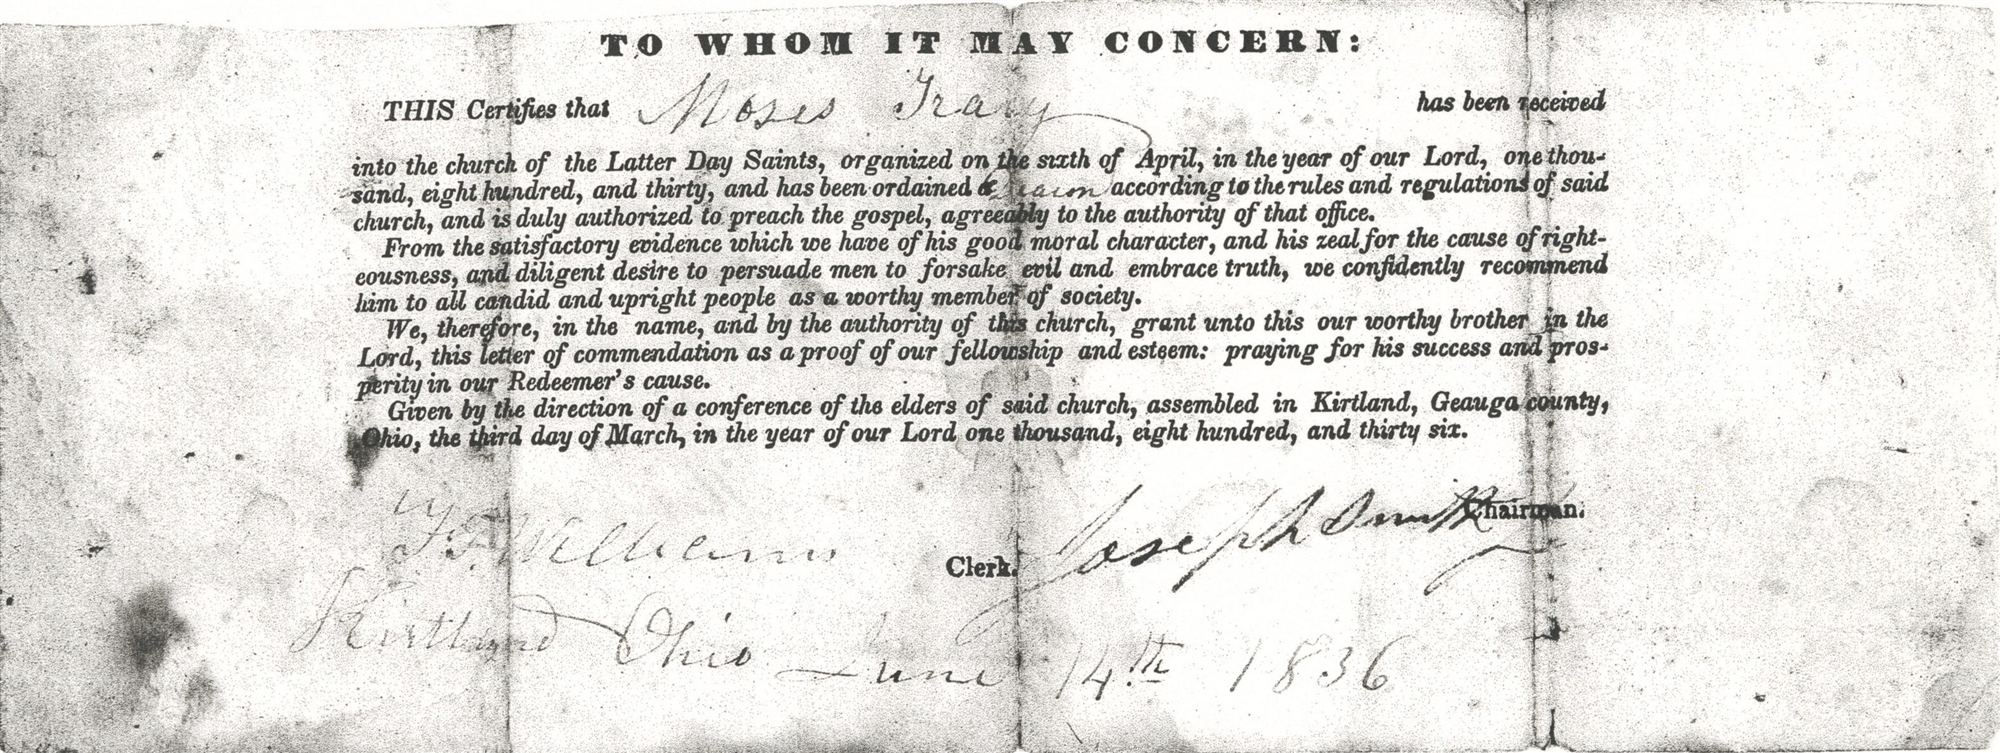 TO WHOM IT MAY CONCERN:
THIS Certifies that Moses Tracy has been received
into the church of the Latter Day Saints, organized on the sixth of April, in the year of our Lord, one thou-
sand, eight hundred, and thirty, and has been ordained a deacon according to the rules and regulations of said
church, and is duly authorized to preach the gospel, agreeably to the authority of that office.
From the satisfactory evidence which we have of his good moral character, and his zeal for the cause of right-
eousness, and diligent desire to persuade men to forsake evil and embrace truth, we confidently recommend
him to all candid and upright people as a worthy member of society.
We, therefore, in the name, and by the authority of this church, grant unto this our worthy brother in the
Lord, this letter of commendation as a proof of our fellowship and esteem: praying for his success and pros-
perity in our Redeemer's cause.
Given by the direction of a conference of the elders of said church, assembled in Kirtland, Geauga county,
Ohio, the third day of March, in the year of our Lord one thousand, eight hundred, and thirty six.
Joseph Smith Chairman.
F. G. Williams Clerk.
Kirtland Ohio June 14th 1836